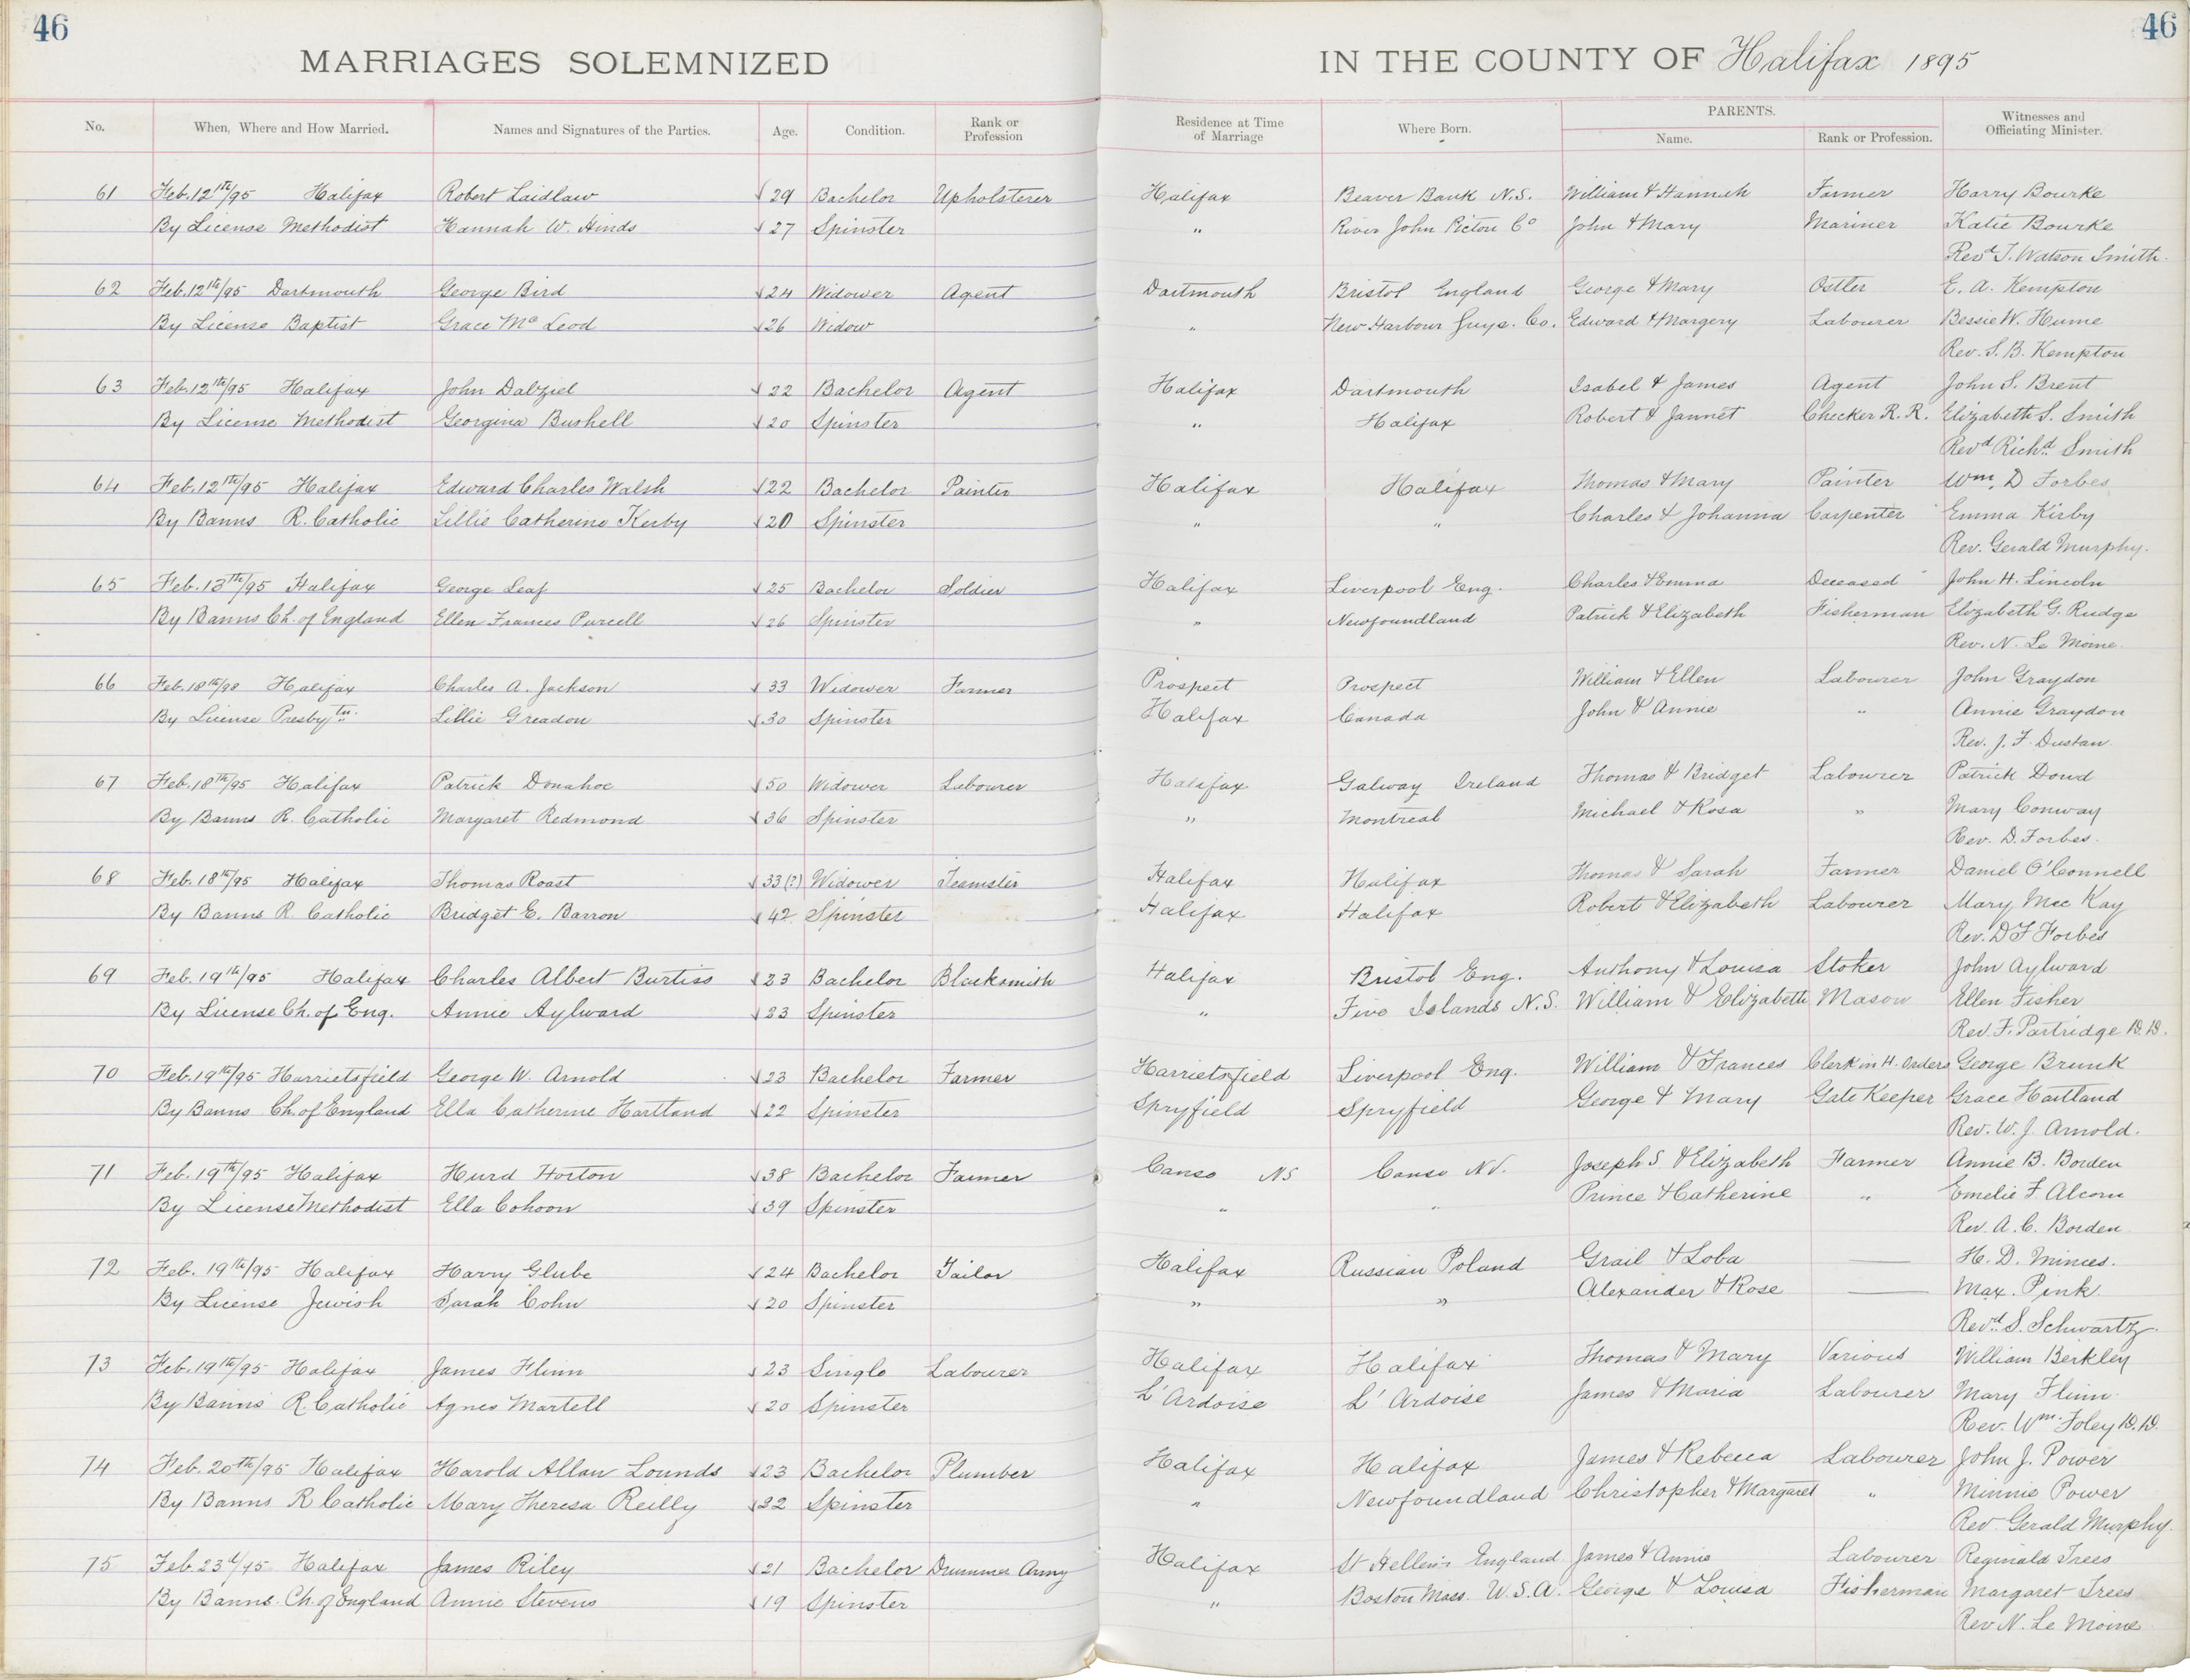 46
46
MARRIAGES SOLEMNIZED IN THE COUNTY OF Halifax 1895
No. When, Where and How Married. Names and Signatures of the Parties. Age. Condition. Rank or Profession Residence at Time of Marriage Where Born. PARENTS. Name. Rank or Profession. Witnesses and Officiating Minister.
61 Feb. 12th/95 Halifax Robert Laidlaw √29 Bachelor Upholsterer Halifax Beaver Bank N.S. William & Hannah Farmer Harry Bourke
By License Methodist Hannah W. Hinds √27 Spinster " River John Pictou Co John & Mary Mariner Katie Bourke
Revd T. Watson Smith.
62 Feb. 12th/95 Dartmouth George Bird √24 Widower Agent Dartmouth Bristol England George & Mary Ostler E. A. Kempton
By License Baptist Grace Mc Leod √26 Widow " New Harbour Guys. Co. Edward & Margery Labourer Bessie W. Hume
Rev. S. B. Kempton
63 Feb. 12th/95 Halifax John Dalziel √22 Bachelor Agent Halifax Dartmouth Isabel & James Agent John S. Brent
By License Methodist Georgina Bushell √20 Spinster " Halifax Robert & Jannet Checker R. R. Elizabeth S. Smith
Revd Richd Smith
64 Feb. 12th/95 Halifax Edward Charles Walsh √22 Bachelor Painter Halifax Halifax Thomas & Mary Painter Wm. D Forbes
By Banns R. Catholic Lillie Catherine Kirby √20 Spinster " " Charles & Johanna Carpenter Emma Kirby
Rev. Gerald Murphy.
65 Feb. 13th/95 Halifax George Leaf √25 Bachelor Soldier Halifax Liverpool Eng. Charles & Emma Deceased John H. Lincoln
By Banns Ch. of England Ellen Frances Purcell √26 Spinster " Newfoundland Patrick & Elizabeth Fisherman Elizabeth G. Rudge
Rev. N. Le Moine.
66 Feb. 18th/98 Halifax Charles A. Jackson √33 Widower Farmer Prospect Prospect William & Ellen Labourer John Graydon
By License Presbytn. Lillie Greadon √30 Spinster Halifax Canada John & Annie " Annie Graydon
Rev. J. F. Dustan
67 Feb. 18th/95 Halifax Patrick Donahoe √50 Widower Labourer Halifax Galway Ireland Thomas & Bridget Labourer Patrick Doud
By Banns R. Catholic Margaret Redmond √36 Spinster " Montreal Michael & Rosa " Mary Conway
Rev. D. Forbes.
68 Feb. 18th/95 Halifax Thomas Roast √33(?) Widower Teamster Halifax Halifax Thomas & Sarah Farmer Daniel O'Connell
By Banns R. Catholic Bridget E. Barron √42 Spinster Halifax Halifax Robert & Elizabeth Labourer Mary Mec Kay
Rev. D F Forbes
69 Feb. 19th/95 Halifax Charles Albert Burtiss √23 Bachelor Blacksmith Halifax Bristol Eng. Anthony & Louisa Stoker John Aylward
By License Ch. of Eng. Annie Aylward √23 Spinster " Five Islands N.S. William & Elizabeth Mason Ellen Fisher
Rev. F. Partridge D.D.
70 Feb. 19th/95 Harrietsfield George W. Arnold √23 Bachelor Farmer Harrietsfield Liverpool Eng. William & Frances Clerk in H. Orders George Brunk
By Banns Ch. of England Ella Catherine Hartland √22 Spinster Spryfield Spryfield George & Mary Gate Keeper Grace Hartland
Rev. W. J. Arnold.
71 Feb. 19th/95 Halifax Hurd Horton √38 Bachelor Farmer Canso NS Canso N.S. Joseph S & Elizabeth Farmer Annie B. Borden
By License Methodist Ella Cohoon √39 Spinster " " Prince & Catherine " Emelie F. Alcorn
Rev. A. C. Borden
72 Feb. 19th/95 Halifax Harry Glube √24 Bachelor Tailor Halifax Russian Poland Grail & Loba — H. D. Minces.
By License Jewish Sarah Cohn √20 Spinster " " Alexander & Rose — Max. Pink.
Revd. S. Schwartz.
73 Feb. 19th/95 Halifax James Flinn √23 Single Labourer Halifax Halifax Thomas & Mary Various William Berkley
By Banns R. Catholic Agnes Martell √20 Spinster L'Ardoise L'Ardoise James & Maria Labourer Mary Flinn
Rev. Wm. Foley D.D.
74 Feb. 20th/95 Halifax Harold Allan Lounds √23 Bachelor Plumber Halifax Halifax James & Rebecca Labourer John J. Power
By Banns R Catholic Mary Theresa Reilly √22 Spinster " Newfoundland Christopher & Margaret " Minnie Power
Rev. Gerald Murphy.
75 Feb. 23d/95 Halifax James Riley √21 Bachelor Drummer Army Halifax St Hellens England James & Annie Labourer Reginald Trees
By Banns Ch. of England Annie Stevens √19 Spinster " Boston Mass. U.S.A. George & Louisa Fisherman Margaret Trees
Rev N. Le Moine